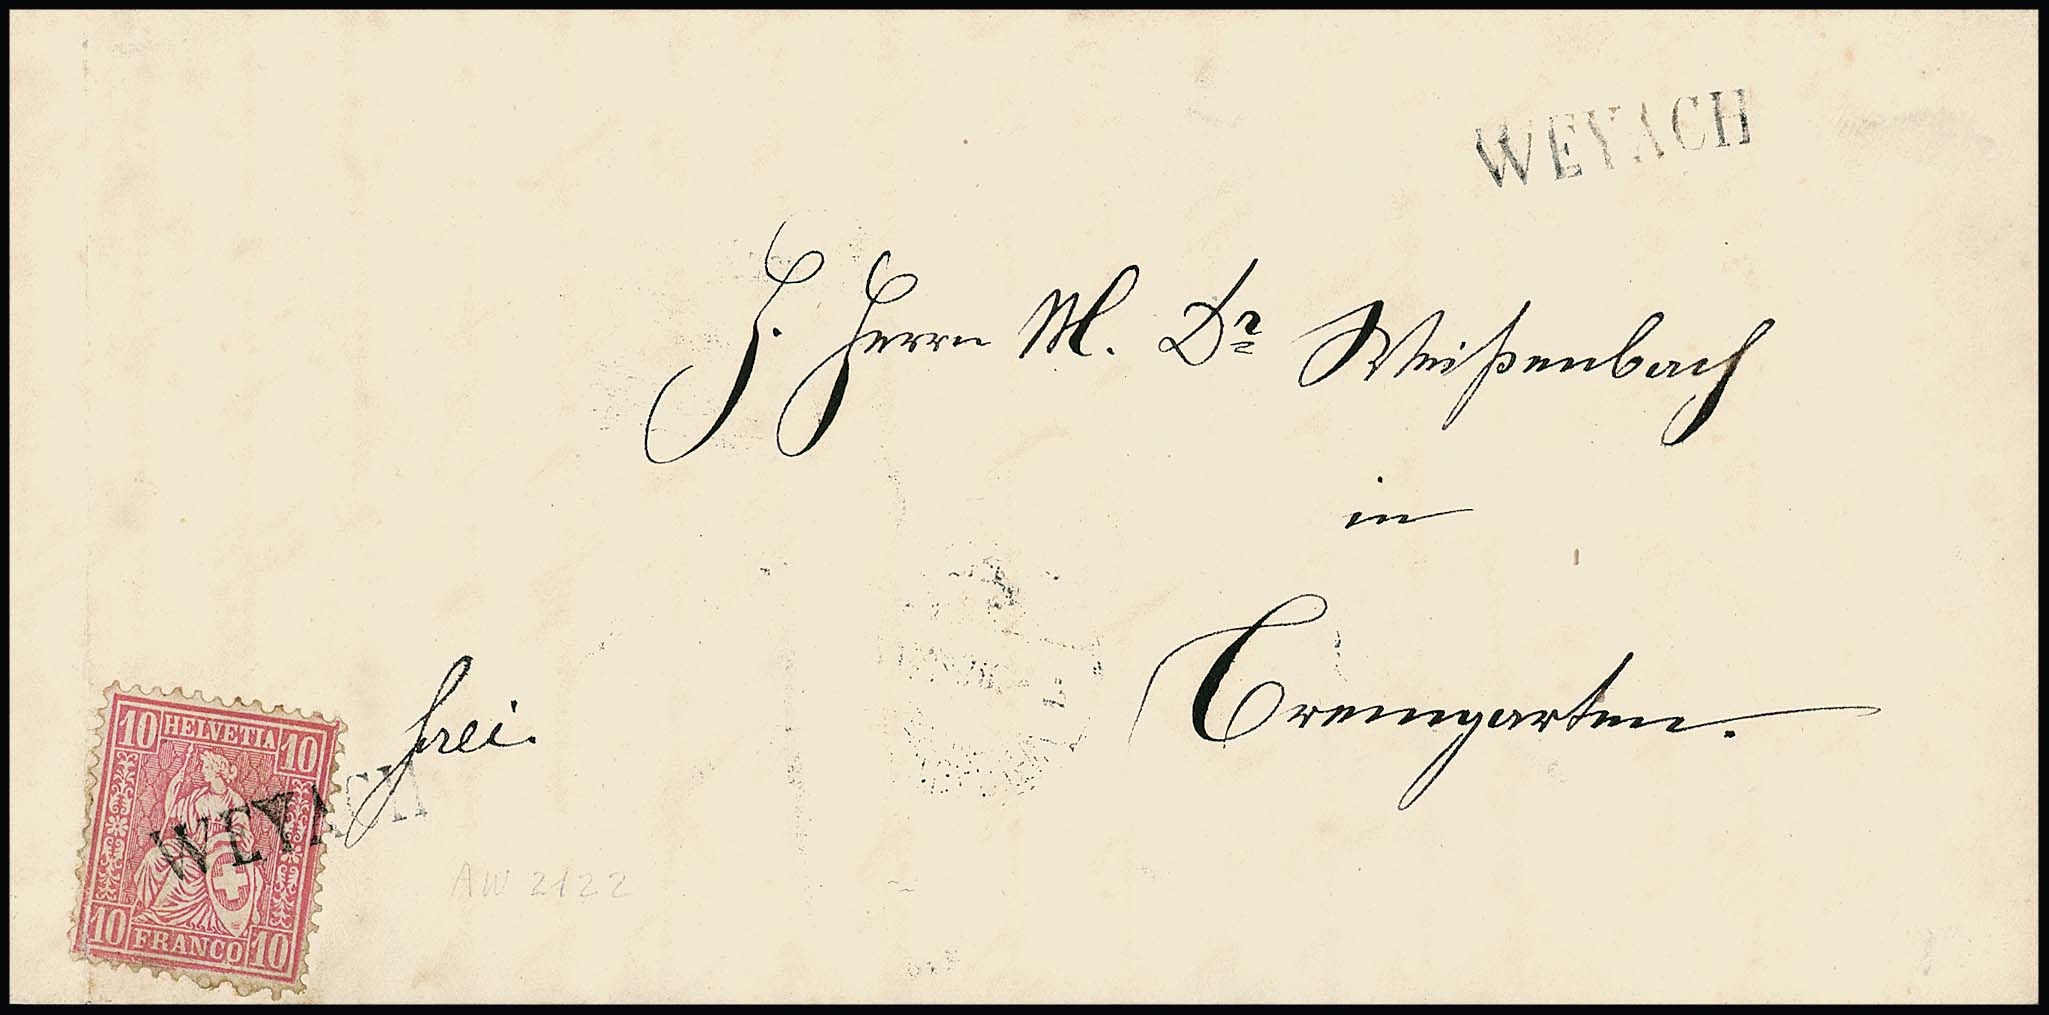 WEYACH
H. Herrn M. Dr Weißenbach
in
Bremgarten.
frei.
10 HELVETIA 10
WEYACH
10 FRANCO 10
AW 2122